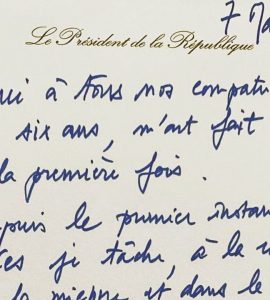 7 Ma
Le Président de la République
ui à tous nos compatr
six ans, m'ont fait
la première fois.
puis le premier instan
je tâche, à la
la mienne et dans le